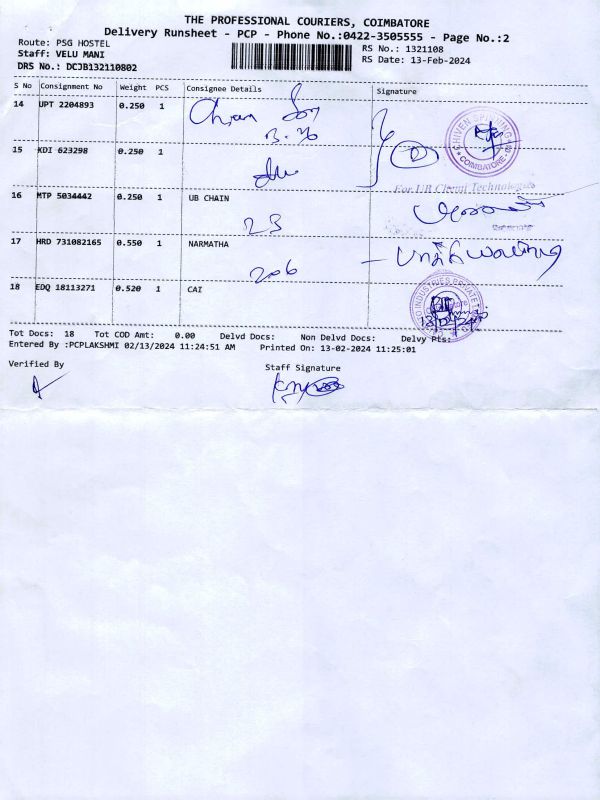 THE PROFESSIONAL COURIERS, COIMBATORE
Delivery Runsheet - PCP - Phone No.:0422-3505555 - Page No.:2
Route: PSG HOSTEL
Staff: VELU MANI
DRS No.: DCJB132110802
RS No.: 1321108
RS Date: 13-Feb-2024
S No Consignment No Weight PCS Consignee Details Signature
14 UPT 2204893 0.250 1
15 KDI 623298 0.250 1
For UB Chemi Technologies
16 MTP 5034442 0.250 1 UB CHAIN
23
17 HRD 731082165 0.550 1 NARMATHA
206
18 EDQ 18113271 0.520 1 CAI
Tot Docs: 18 Tot COD Amt: 0.00 Delvd Docs: Non Delvd Docs: Delvy Pts:
Entered By :PCPLAKSHMI 02/13/2024 11:24:51 AM Printed On: 13-02-2024 11:25:01
Verified By Staff Signature